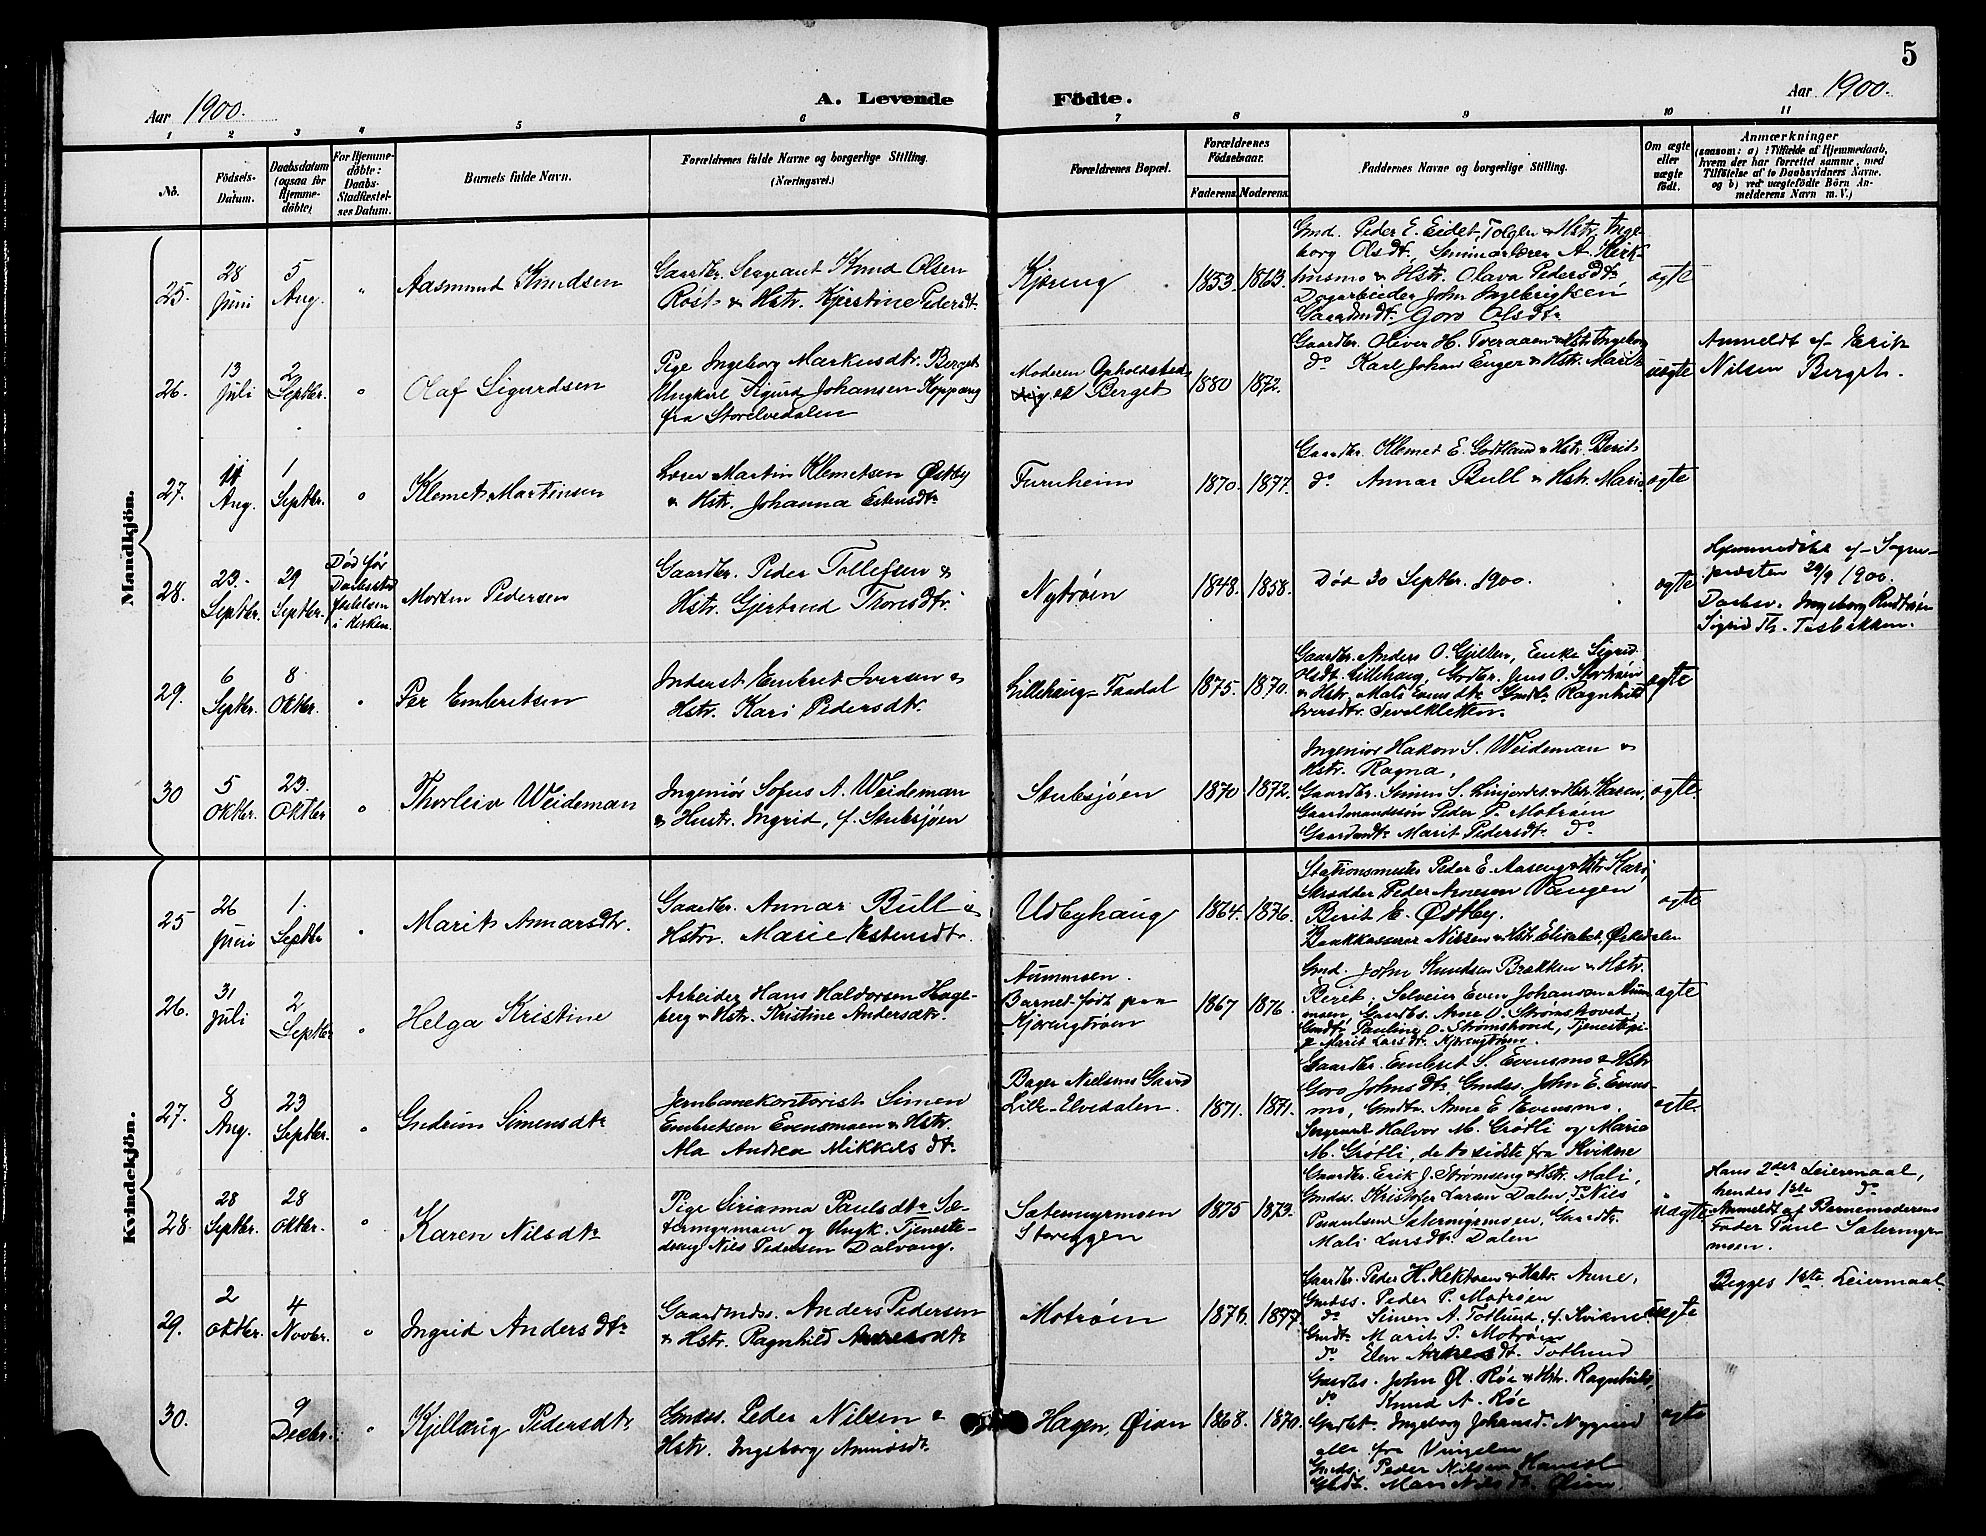 5
Aar 1900.
A. Levende Födte.
Aar 1900.
1 2 3 4 5 6 7 8 9 10 11
No.
Födsels-Datum.
Daabsdatum (ogsaa for Hjemme-döbte)
For Hjemme-döbte: Daabs-Stadfæstel-ses Datum.
Barnets fulde Navn.
Forældrenes fulde Navne og borgerlige Stilling.
(Næringsvei.)
Forældrenes Bopæl.
Forældrenes Födselsaar.
Faderens. Moderens.
Faddernes Navne og borgerlige Stilling.
Om ægte eller uægte födt.
Anmærkninger
(saasom: a) i Tilfælde af Hjemmedaab,
hvem der har forrettet samme, med
Tilföielse af to Daabsvidners Navne,
og b) ved uægtefödte Börn An-
melderens Navn m. V.)
Mandkjön.
25.
28 Juni
5 Aug.
"
Aasmund Knudsen
Gaardbr. Sergeant Knud Olsen
Røst & Hstr. Kjerstine Pedersdtr.
Kjøreng
1853. 1863.
Gmd. Peder E. Eidet, Tolgen & Hstr. Inge-
borg Olsdt. Seminarlærer A. Kirk-
husmo & Hstr. Olava Pedersdtr.
Dagarbeider John Ingebrigtsen
Gaardmdt. Goro Olsdtr
ægte
26.
13 Juli
2 Septbr.
"
Olaf Sigurdsen
Pige Ingeborg Markusdtr. Berget
Ungkarl Sigurd Johansen Koppang
fra Storelvedalen
Moderen Opholdssted
Berget
1880 1872.
Gaardbr. Oliver H. Tveraaen & Hstr. Ingeborg
do Karl Johan Enger & Hstr. Marit
uægte
Anmeldt af Erik
Nilsen Berget.
27.
11 Aug.
1 Septbr.
"
Klemet Martinsen
Lærer Martin Klemetsen Østby
& Hstr. Johanna Estensdtr
Furuheim
1870. 1877.
Gaardbr. Klemet E. Godtland & Hstr. Berit
do Annar Bull & Hstr. Marie
ægte
28.
23. Septbr.
29 Septbr.
Død før
Daabsstad
festelsen
i Kirken.
Morten Pedersen
Gaardbr. Peder Tollefsen &
Hstr. Gjertrud Thoresdtr.
Nytrøen
1848. 1858.
Død 30 Septbr. 1900.
ægte
Hjemmedøbt af Sogne-
præsten 29/9 1900.
Daabsv. Ingeborg Rudtrøen
Sigrid Th. Tosbakken.
29.
6 Septbr.
8. Oktbr.
"
Per Embretsen
Inderst Embret Iversen &
Hstr. Kari Pedersdtr.
Lillehaug-Faadal
1875. 1870.
Gaardbr. Anders O. Gjelten, Enke Sigrid
Olsdt. Lillehaug, Gdbr. Jens O. Stortrøen
& Hstr. Mali Evensdtr. Gmdtr. Ragnhild
Iversdtr.
ægte
30
5 Oktbr.
23. Oktbr
"
Thorleiv Weideman
Ingeniør Sofus A. Weideman
& Hustr. Ingrid, f. Stubsjøen
Stubsjøen
1870 1872.
Ingeniør Hakon S. Weideman &
Hstr. Ragna,
Gaardbr. Simen S. Linjordet & Hstr. Karen,
Gaardmandssøn Peder P. Motrøen
Gaardmdtr Marit Pedersdtr. do
ægte.
Kvindekjön.
25
26 Juni
1. Septbr
"
Marit Annarsdtr.
Gaardbr. Annar Bull &
Hstr. Marie Estensdtr.
Udbyhaug
1864. 1876.
Stationsmester Peder E. Aaseng & Hstr. Kari,
Skrædder Peder Arnesen Vangen
Berit E. Østby.
Bankkasserer Nilsen & Hstr. Elisabet,
ægte
26.
31 Juli
2 Septbr
"
Helga Kristine
Arbeider Hans Haldorsen Hage-
berg & Hstr. Kristine Andersdtr.
Aummoen.
Barnet født paa
Kjørengtrøen
1867 1876
Gmd. John Knudsen Brækken & Hstr.
Berit, Selveier Even Johansen Aum-
moen, Gaardbs. Arne O. Strømshoved,
Gmdtr Pauline O. Strømshoved, Tjenestepi-
ge Marit Larsdtr. Kjørengtrøen.
ægte
27.
8 Aug.
23 Septbr.
"
Gudrun Simensdtr
Jernbanekontorist Simen
Embretsen Evensmoen & Hstr.
Ala Andrea Mikkelsdtr.
Bager Nielsens Gaard
Lille-Elvedalen.
1871. 1871.
Gaardbr. Embret S. Evensmo & Hstr
Goro Johnsdtr. Gmdss. John E. Evens-
mo, Gmdtr. Anne E. Evensmo.
Sergeant Halvor M. Grøtli og Marie
M. Grøtli, de to sidste fra Kvikne
ægte.
28.
28 Septbr.
28 Oktbr.
"
Karen Nilsdtr
Pige Sirianna Paulsdtr Sæ-
termyrmoen og Ungk. Tjeneste-
dreng Nils Pedersen Dalvang.
Sætermyrmoen
Storeggen
1875 1873.
Gaardbr. Erik J. Strømseng & Hstr. Mali,
Gmdss. Kristofer Larsen Dalen, Nils
Paulsen Sætermyrmoen, Gaardtr.
Mali Larsdtr. Dalen
uægte
Hans 2det Leiermaal,
hendes 1ste do.
Anmeldt af Barnemoderens
Fader Paul Sætermyr-
moen.
29.
2 Oktbr.
4 Novbr.
"
Ingrid Andersdtr
Gaardmdss. Anders Pedersen
& Hstr. Ragnhild Andersdtr
Motrøen
1876. 1877
Gaardbr. Peder H. Hektoen & Hstr. Anne,
Gmdss. Peder P. Motrøen
do Simen A. Totlund, f. Kvikne
Gmdtr Marit P. Motrøen
do Elen Andersdt. Totlund
uægte
Begges 1ste Leiermaal
30.
9 Decbr.
"
Kjellaug Pedersdtr
Gmdss. Peder Nilsen &
Hstr. Ingeborg Amundsdtr.
Hagen, Øian
1868. 1870.
Gmdbs. John Ol. Røe & Hstr. Ragnhild,
do Knud A. Røe
Gmdtr. Ingeborg Johansd. Nygaard
alle fra Vingelen
Gmds. Peder Nilsen
Gbdt. Mari Nilsdt. Øien.
ægte